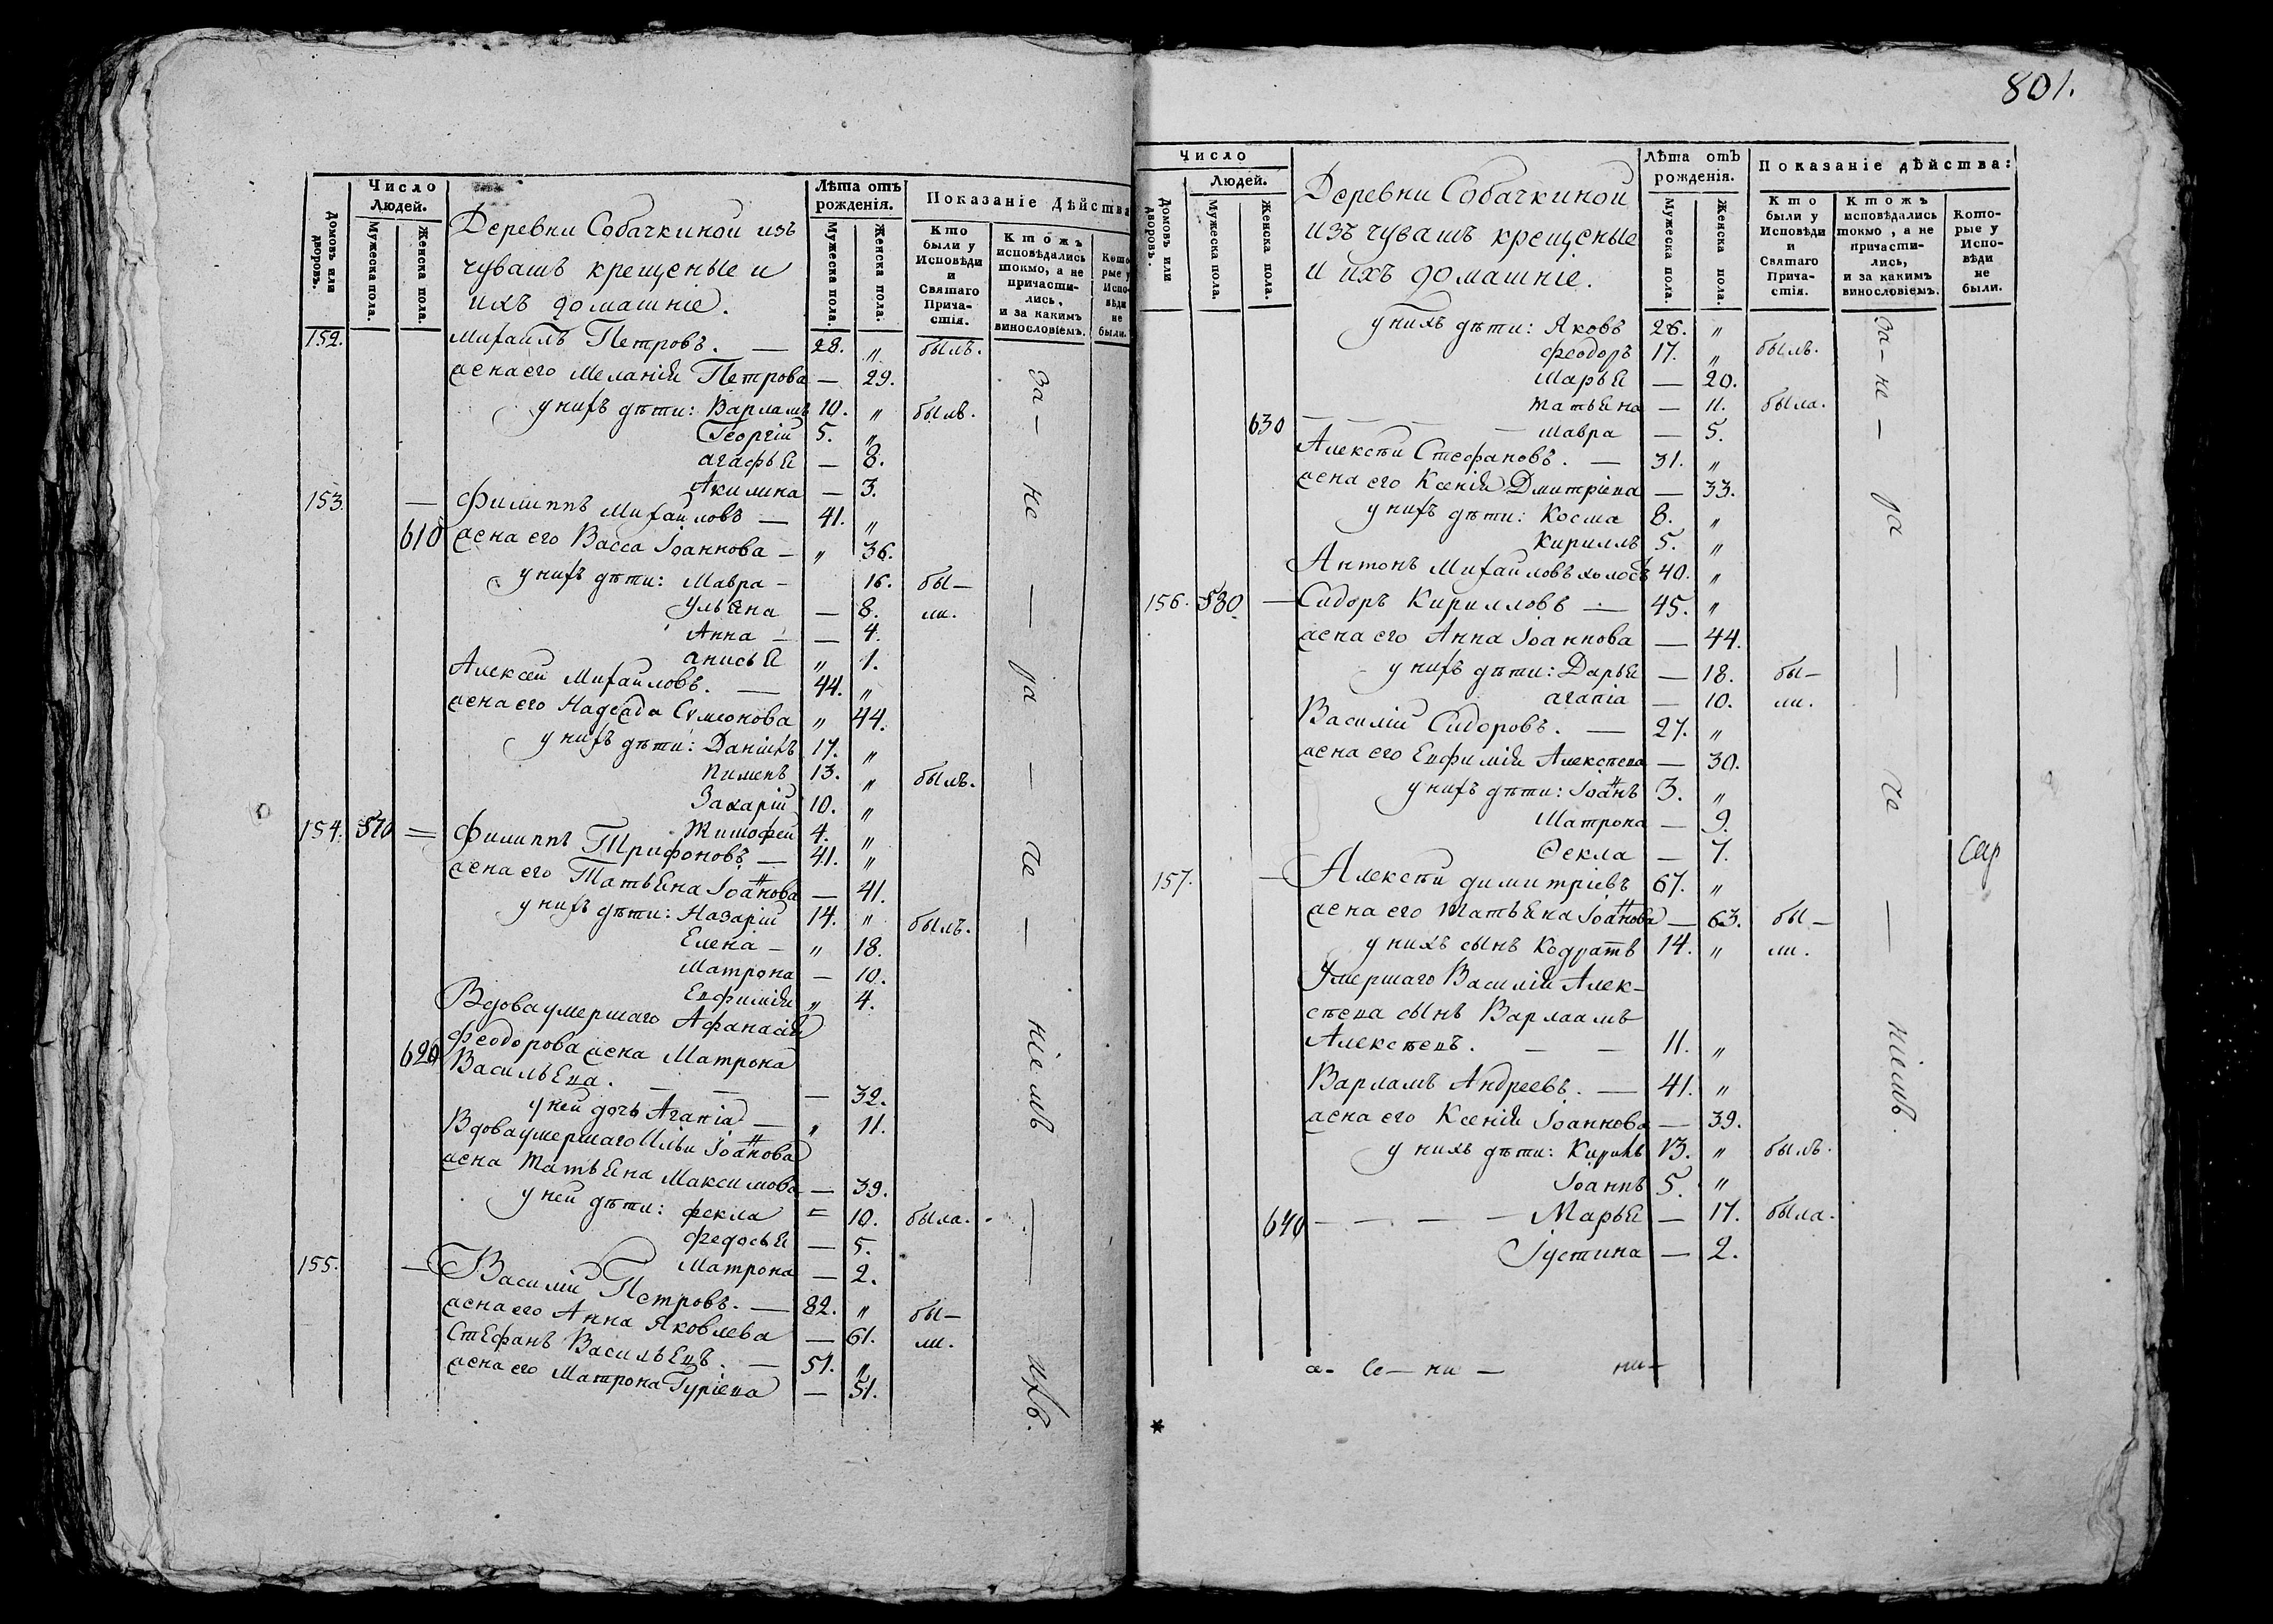 Домовъ или дворовъ.
Число Людей.
Мужеска пола.
Женска пола.
Деревни Собачкиной изъ
чувашъ крещеные и
ихъ домашніе.
Лѣта отъ рожденія.
Мужеска пола.
Женска пола.
Показаніе Дѣйства
Кто были у Исповѣди и Святаго Прича- стія.
Ктожъ исповѣдались токмо, а не причасти- лись, и за какимъ винословіемъ.
Кото рые у Испо- вѣди не были.
152. Михаилъ Петровъ. — 28. „ былъ.
жена его Меланія Петрова — 29.
у нихъ дѣти: Варламъ 10. „ былъ.
Георгій 5. „
Агафья — 8.
Акилина — 3.
153. — Филиппъ Михайловъ — 41. „
610 жена его Васса Іоаннова — „ 36.
у нихъ дѣти: Мавра — 16. бы—
Ульяна — 8. ли.
Анна — — 4.
анисья „ 1.
Алексей Михайловъ. — 44. „
жена его Надежда Сумеонова „ 44.
у нихъ дѣти: Даніилъ 17. „
Пименъ 13. „ былъ.
Захарій 10. „
Тимофей 4. „
154. 570 = Филиппъ Трифоновъ — 41. „
жена его Татьяна Іоаннова — 41.
у нихъ дѣти: Назарій 14. „ былъ.
Елена — „ 18.
Матрона — 10.
Евфимія „ 4.
Вдова умершаго Афанасія
Феодорова жена Матрона
620 Васильева. — — — 32.
у ней дочь Агапіа — „ 11.
Вдова умершаго Ильи Іоаннова
жена Татьяна Максимова — 39.
у ней дѣти: фекла = 10. была.
федосья — 5.
Матрона — 2.
155. — Василій Петровъ. — 82. „ бы—
жена его Анна Яковлева — 61. ли.
Стефанъ Васильевъ. — 51. „
жена его Матрона Гуріева — 51.
за— не — ра — че — ніемъ — ихъ.
801.
Домовъ или дворовъ.
Число Людей.
Мужеска пола.
Женска пола.
Деревни Собачкиной
изъ чувашъ крещеные
и ихъ домашніе.
Лѣта отъ рожденія.
Мужеска пола.
Женска пола.
Показаніе дѣйства:
Кто были у Исповѣди и Святаго Прича- стія.
Ктожъ исповѣдались токмо, а не причасти- лись, и за какимъ винословіемъ.
Кото- рые у Испо- вѣди не были.
у нихъ дѣти: Яковъ 26. „
Феодоръ 17. „ былъ.
Марья — 20.
татьяна — 11. была.
630 — — — Мавра — 5.
Алексѣй Стефановъ. — 31. „
жена его Ксенія Дмитріева — 33.
у нихъ дѣти: Косма 8. „
Кириллъ 5. „
Антонъ Михайловъ холостъ 40. „
156. 580 — Сидоръ Кирилловъ — 45. „
жена его Анна Іоаннова — 44.
у нихъ дѣти: Дарья — 18. бы—
агапіа — 10. ли.
Василій Сидоровъ. — 27. „
жена его Евфимія Алексѣева — 30.
у нихъ дѣти: Іоаннъ 3. „
Матрона — 9.
Ѳекла — 7.
157. — Алексѣй димитріевъ 67. „
жена его Татьяна Іоаннова — 63. бы—
у нихъ сынъ Кодратъ 14. „ ли.
Умершаго Василія Алек—
сѣева сынъ Варлаамъ
Алексѣевъ. — — 11. „
Варламъ Андреевъ. — 41. „
жена его Ксенія Іоаннова — 39.
у нихъ дѣти: Кирилъ 13. „ былъ.
Іоаннъ 5. „
640 — — — — Марья — 17. была.
Іустина — 2.
за— не — ра — че — ніемъ.
се— ни — ни—
*